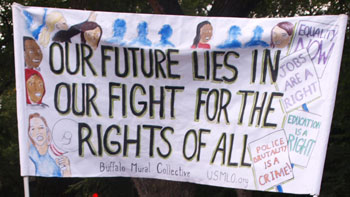 OUR FUTURE LIES IN
OUR FIGHT FOR THE
RIGHTS OF ALL
Buffalo Mural Collective
USMLO.org
EQUALITY
NOW
JOBS
ARE A
RIGHT
EDUCATION
IS A
RIGHT
POLICE
BRUTALITY
IS A
CRIME!